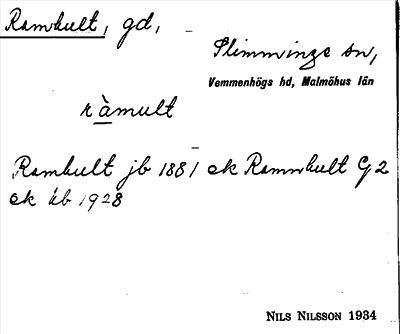 Ramhult, gd,
Slimminge sn,
Vemmenhögs hd, Malmöhus län
ràmult
Ramhult jb 1881 ek Rammhult G 2
ek kb 1928
NILS NILSSON 1934